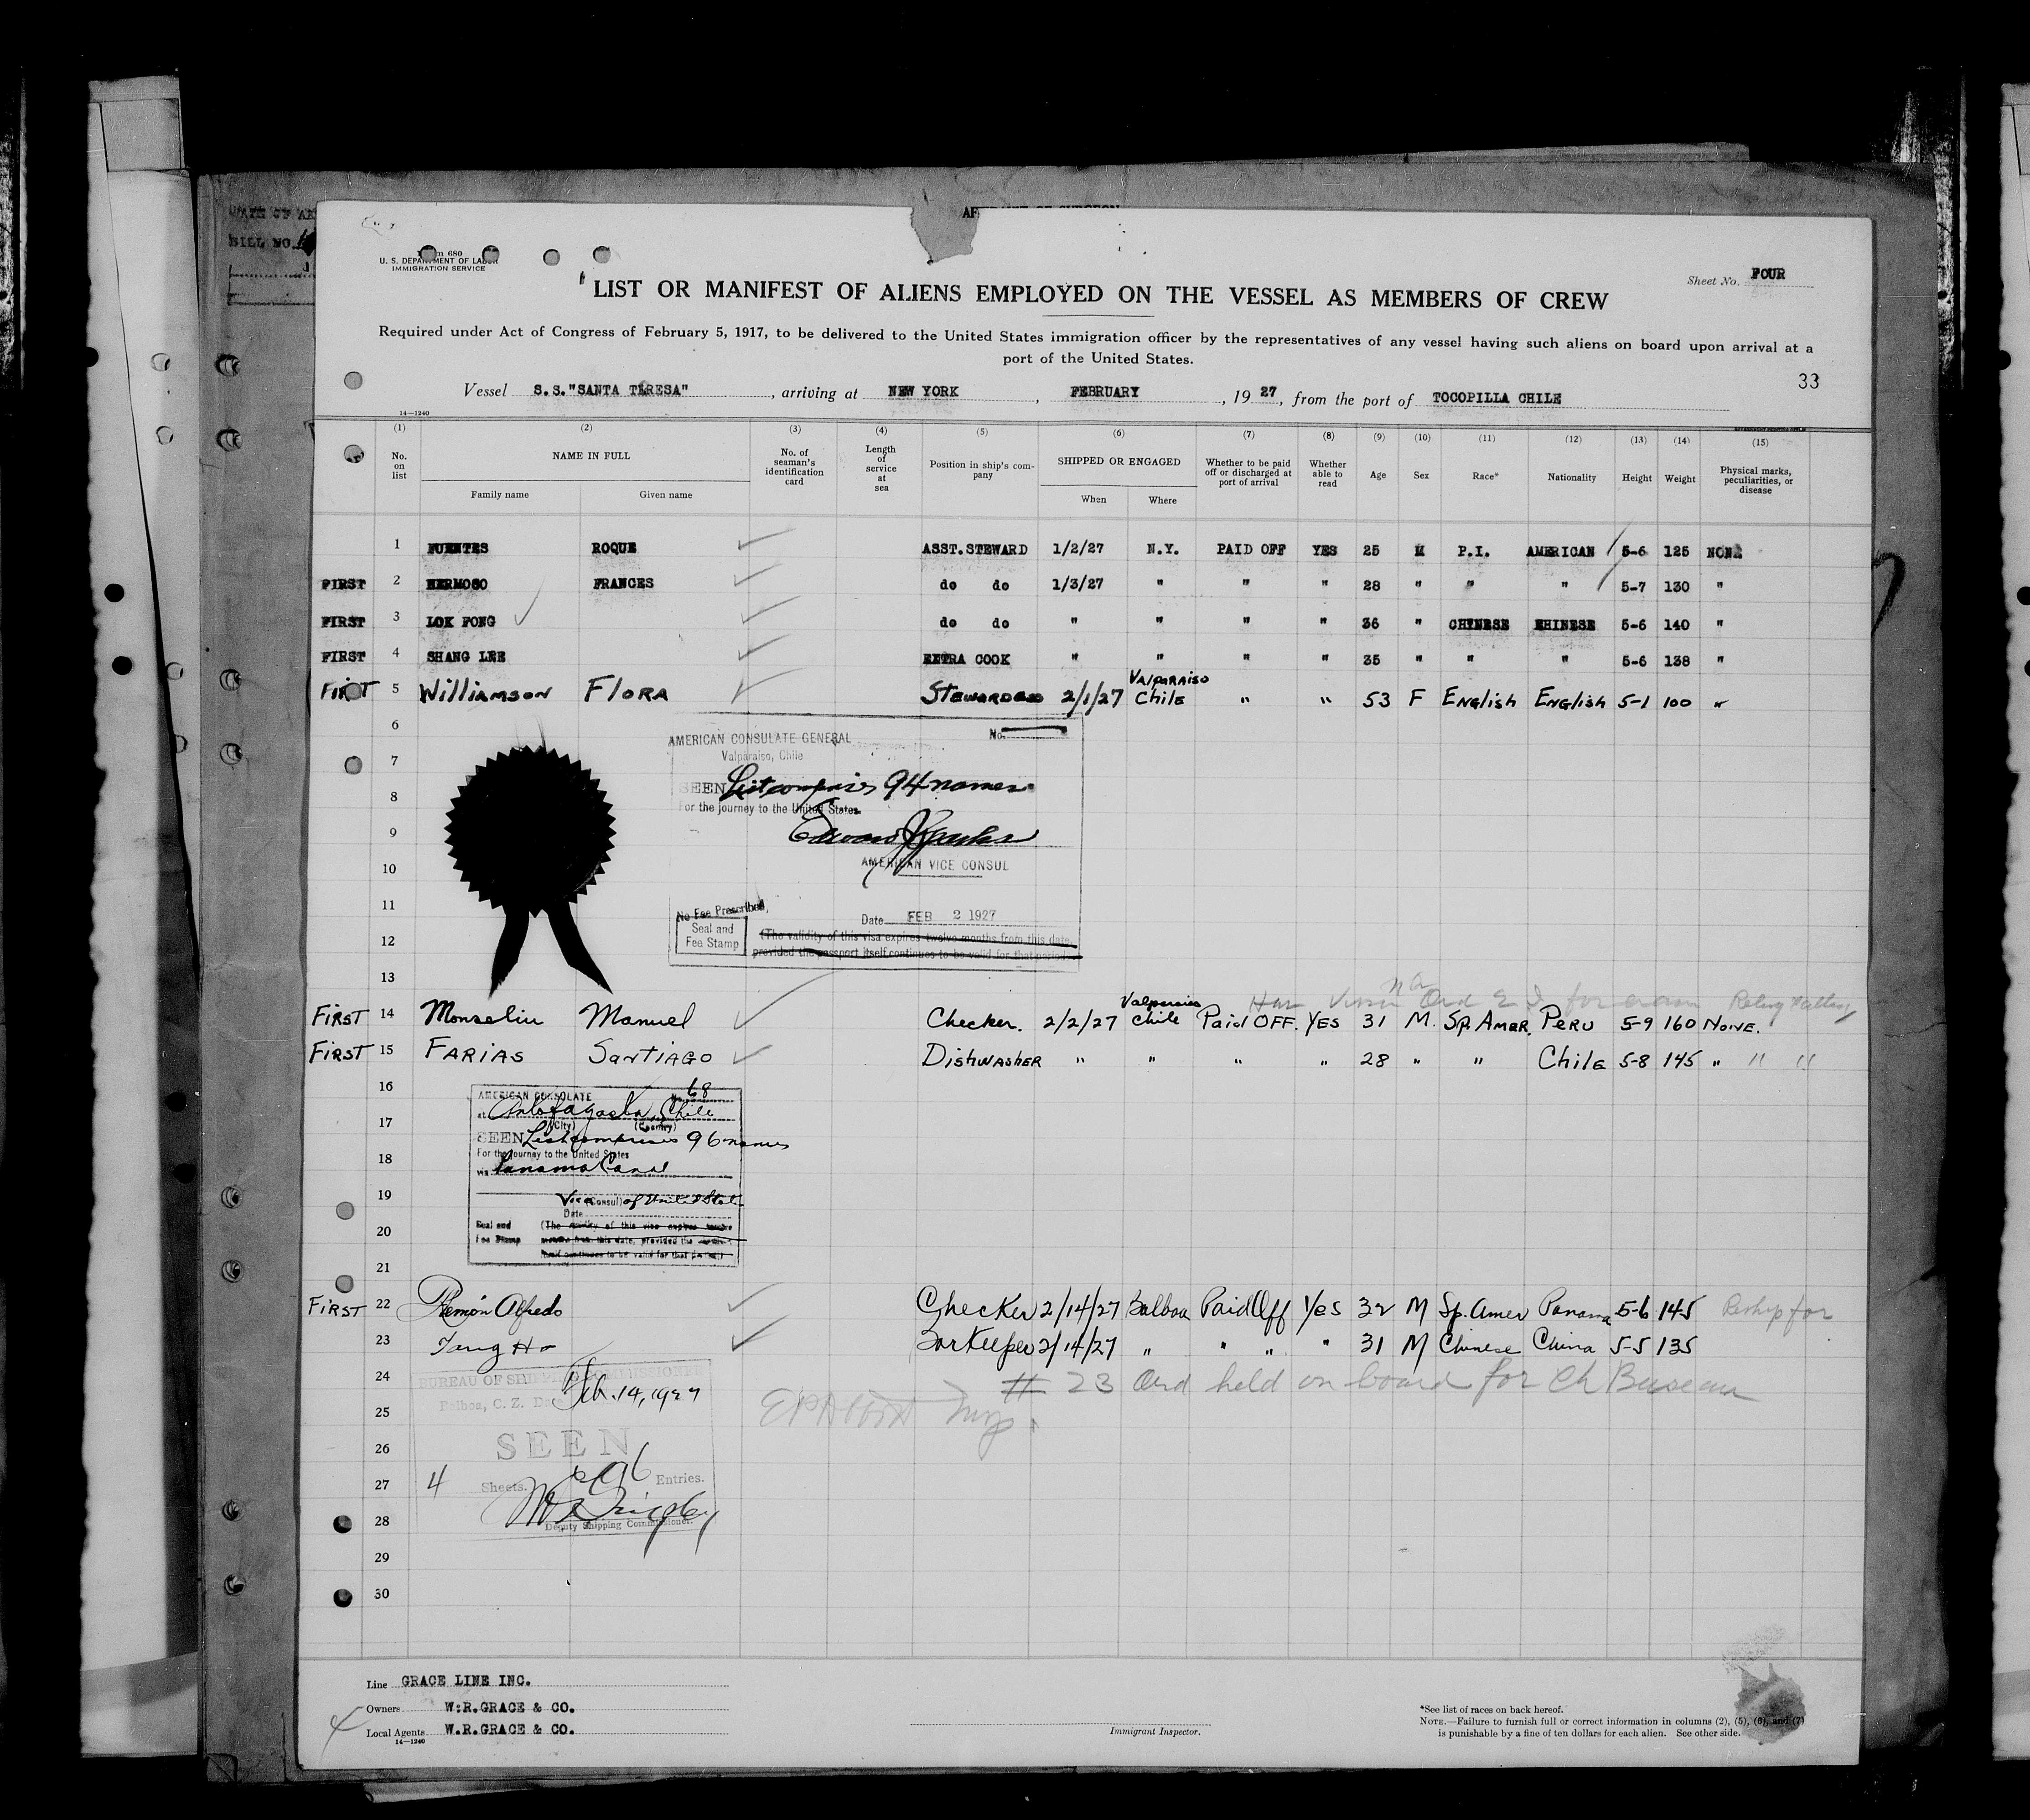 Form 680
U. S. DEPARTMENT OF LABOR
IMMIGRATION SERVICE
Sheet No. FOUR
LIST OR MANIFEST OF ALIENS EMPLOYED ON THE VESSEL AS MEMBERS OF CREW
Required under Act of Congress of February 5, 1917, to be delivered to the United States immigration officer by the representatives of any vessel having such aliens on board upon arrival at a
port of the United States.
33
Vessel S.S."SANTA TERESA", arriving at NEW YORK, FEBRUARY, 19 27, from the port of TOCOPILLA CHILE
14—1240
(1) (2) (3) (4) (5) (6) (7) (8) (9) (10) (11) (12) (13) (14) (15)
No. on list NAME IN FULL Family name Given name No. of seaman's identification card Length of service at sea Position in ship's company SHIPPED OR ENGAGED When Where Whether to be paid off or discharged at port of arrival Whether able to read Age Sex Race* Nationality Height Weight Physical marks, peculiarities, or disease
1 FUENTES ROQUE ASST.STEWARD 1/2/27 N.Y. PAID OFF YES 25 M P.I. AMERICAN 5-6 125 NONE
FIRST 2 HERMOSO FRANCES do do 1/3/27 " " " 28 " " " 5-7 130 "
FIRST 3 LOK FONG do do " " " " 36 " CHINESE CHINESE 5-6 140 "
FIRST 4 SHANG LEE EXTRA COOK " " " " 35 " " " 5-6 138 "
FIRST 5 Williamson Flora Stewardess 2/1/27 Valparaiso Chile " " 53 F English English 5-1 100 "
6
AMERICAN CONSULATE GENERAL No.
7
Valparaiso, Chile
SEEN List comprises 94 names
8
For the journey to the United States
9
10
AMERICAN VICE CONSUL
11
No Fee Prescribed,
Date FEB 2 1927
Seal and
Fee Stamp
12
(The validity of this visa expires twelve months from this date
provided the passport itself continues to be valid for that period
13
FIRST 14 Monselin Manuel Checker. 2/2/27 Valparaiso Chile Paid OFF. YES 31 M. Sp. Amer. Peru 5-9 160 None.
FIRST 15 Farias Santiago Dishwasher " " " " 28 " " Chile 5-8 145 " " "
16
AMERICAN CONSULATE No. 68
at Antofagasta, Chile
17
(City) (Country)
SEEN List comprises 96 names
For the journey to the United States
18
via Panama Canal
19
Vice (Consul) of United States
Date
20
Seal and
Fee Stamp
(The validity of this visa expires twelve
months from this date, provided the
itself continues to be valid for that period.)
21
FIRST 22 Ramón Alfredo Checker 2/14/27 Balboa Paid Off Yes 32 M Sp. Amer Panama 5-6 145 Reship for
23 Tang Ho Barkeeper 2/14/27 " " " " 31 M Chinese China 5-5 135
24 # 23 Ord held on board for Ch Bureau
BUREAU OF SHIPPING COMMISSIONER
Balboa, C. Z. Feb. 14, 1927
25
26
SEEN
27 4 Sheets. 96 Entries.
28
Deputy Shipping Commissioner.
29
30
Line GRACE LINE INC.
Owners W.R.GRACE & CO.
Local Agents W.R.GRACE & CO.
14—1240
Immigrant Inspector.
*See list of races on back hereof.
NOTE.—Failure to furnish full or correct information in columns (2), (5), (6), and (7)
is punishable by a fine of ten dollars for each alien. See other side.